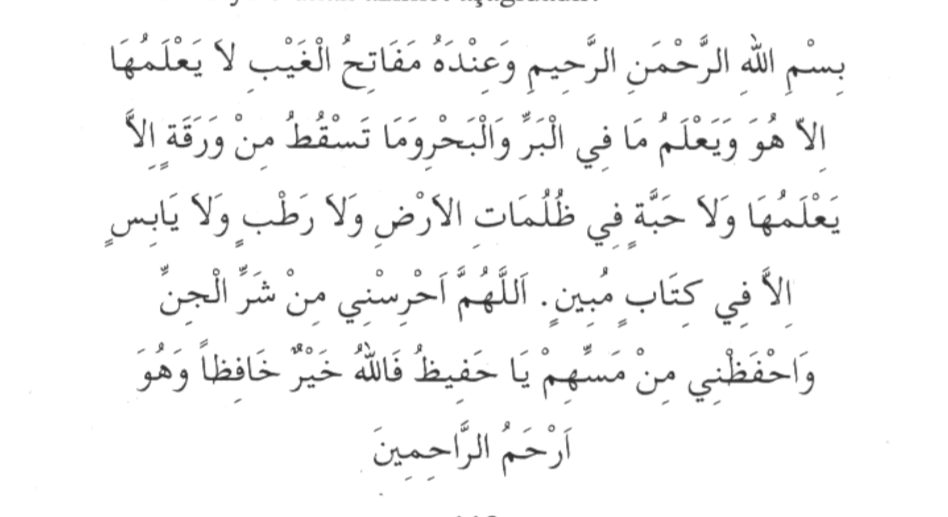 بِسْمِ اللهِ الرَّحْمَنِ الرَّحِيمِ وَعِنْدَهُ مَفَاتِحُ الْغَيْبِ لاَ يَعْلَمُهَا
اِلاّ هُوَ وَيَعْلَمُ مَا فِي الْبَرِّ وَالْبَحْرِوَمَا تَسْقُطُ مِنْ وَرَقَةٍ اِلاَّ
يَعْلَمُهَا وَلاَ حَبَّةٍ فِي ظُلُمَاتِ الاَرْضِ وَلاَ رَطْبٍ وَلاَ يَابِسٍ
اِلاَّ فِي كِتَابٍ مُبِينٍ. اَللَّهُمَّ اَحْرِسْنِي مِنْ شَرِّ الْجِنِّ
وَاَحْفَظْنِي مِنْ مَسِّهِمْ يَا حَفِيظُ فَاللهُ خَيْرٌ حَافِظاً وَهُوَ
اَرْحَمُ الرَّاحِمِينَ